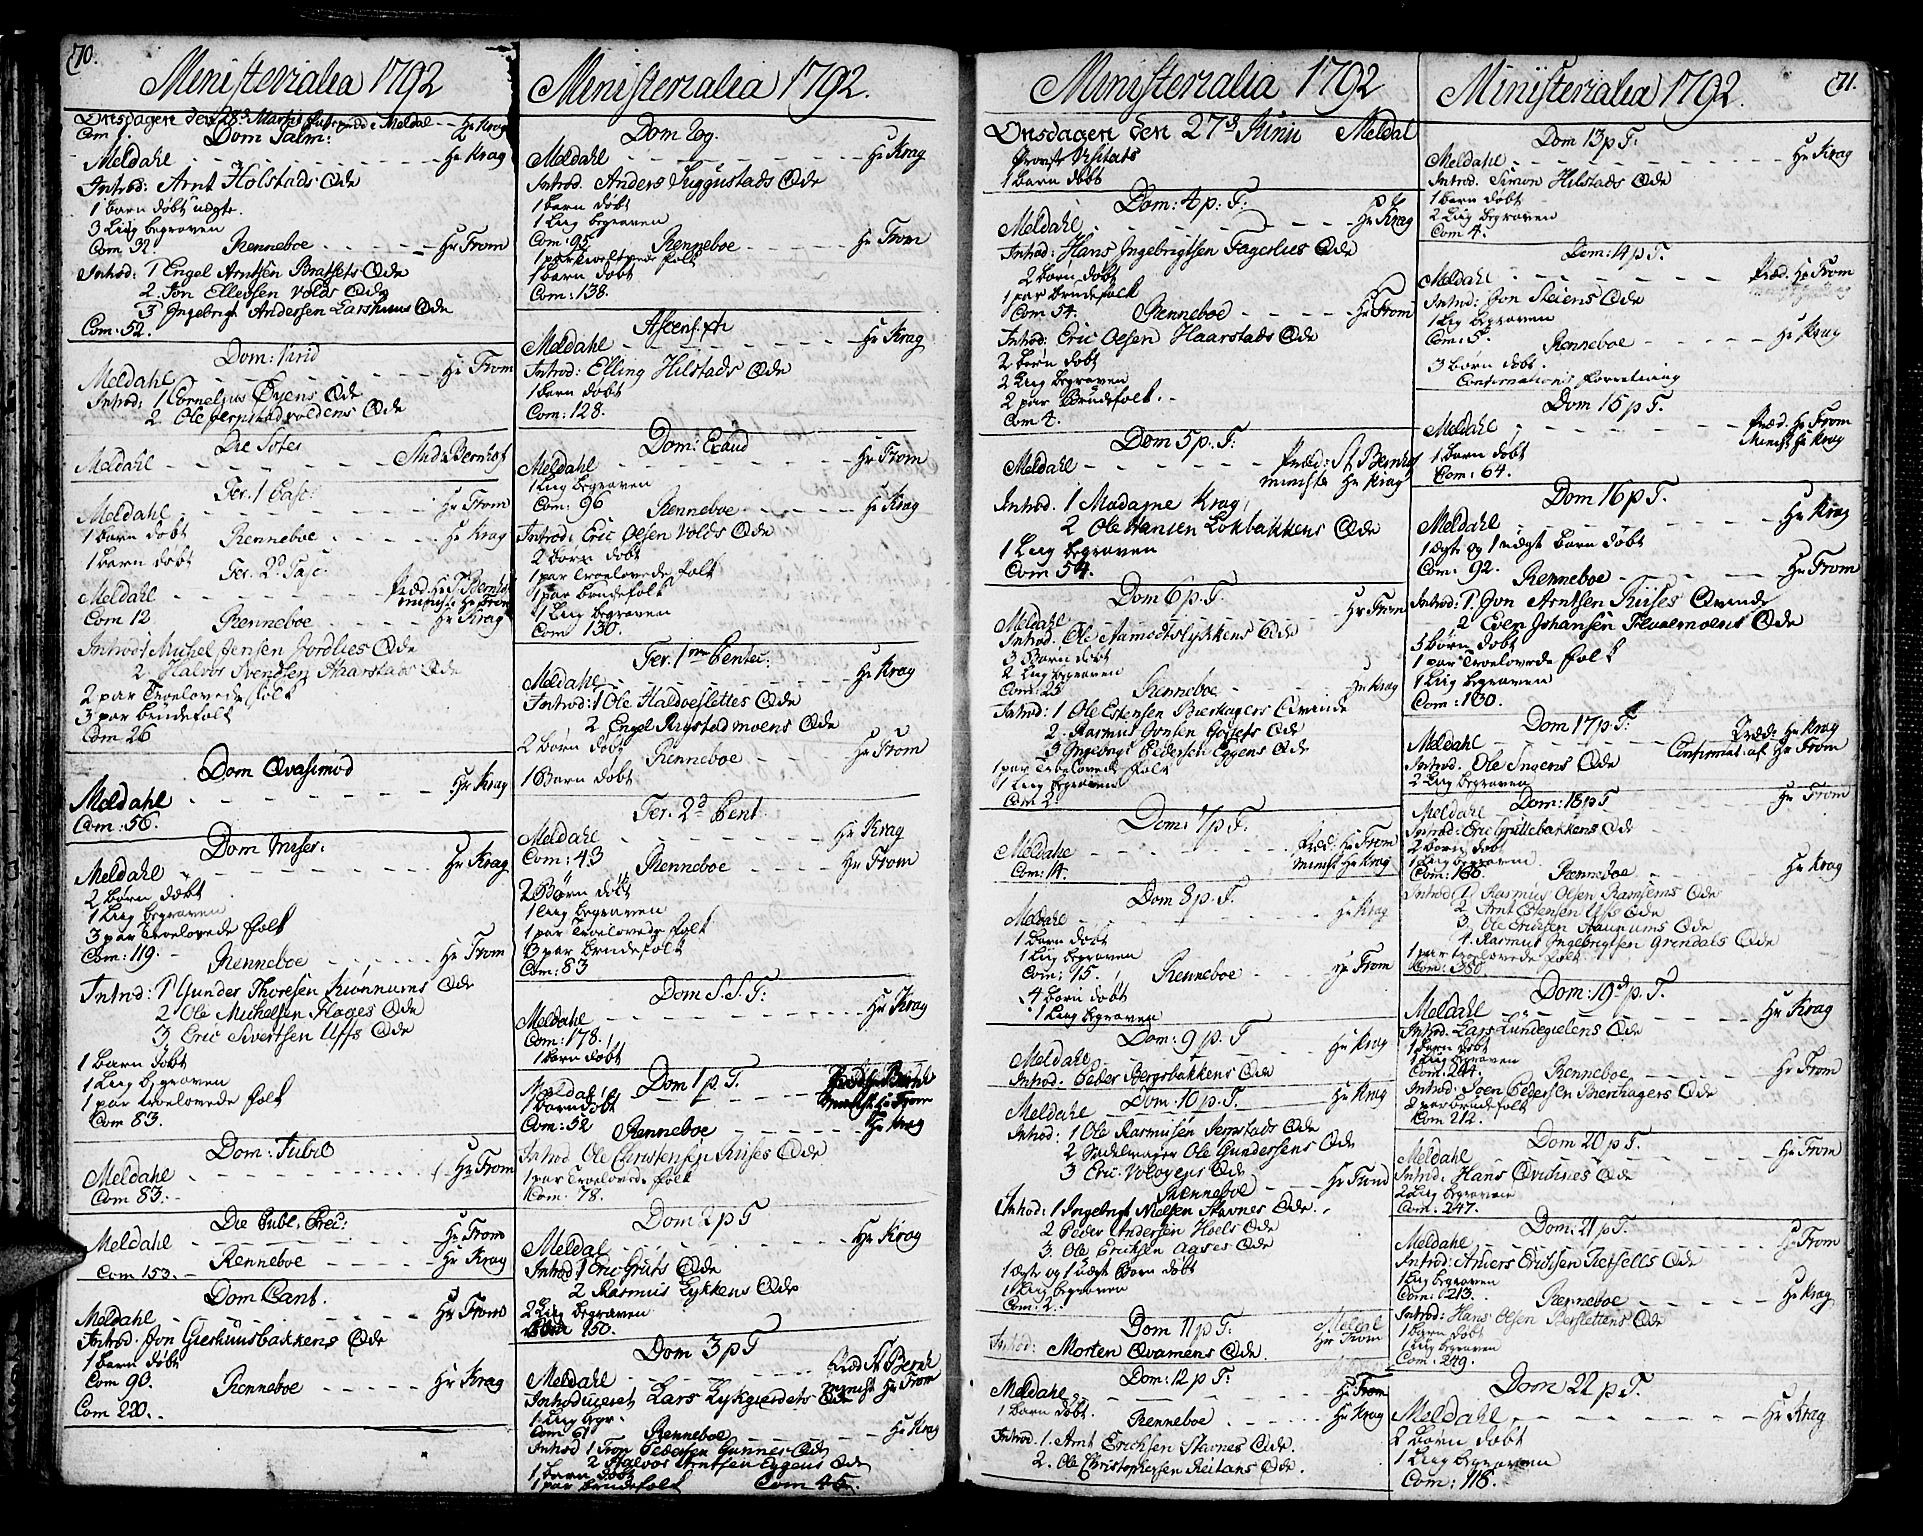 70.
Ministerialia 1792
Onsdagen den 28d Martii Meldal - Hr Krag
Com 1.
Dom Palm:
Meldahl - - - Hr Krag
Introd: Arnt Holstads Qde
1 barn døbt uægte.
3 Liig begraven
Com 32. Renneboe - - - Hr From
Introd: 1 Engel Arntsen Bratsets Qde
2. Jon Ellevsen Volds Qde
3 Ingebrigt Andersen Larshuus Qde
Com: 52.
Dom: Virid
Meldahl - - - Hr From
Introd: 1 Cornelius Øyens Qde
2 Ole Jerpstadvoldens Qde
Die
Meldahl - - - Stud: Bernhof
Fer. 1 Pasc:
Meldahl - - - Hr From
1 barn døbt Renneboe - - - Hr Krag
1 barn døbt
Fer. 2d Pasc:
Meldahl - - - Præd. Hr S. Bernhof
minist: Hr From
Com 12 Renneboe - - - Hr Krag
Introd 1 Michel Jensen Jordlies Qde
2 Halvor Svendsen Haarstads Qde
2 par Troelovede folk
3 par brudefolk
Com 26
Dom Qvasimod
Meldahl - - - Hr Krag
Com: 56.
Dom Miser:
Meldahl - - - Hr Krag
2 Børn døbt
1 Liig begraven
3 par Troelovede folk
Com: 119. - Renneboe - - - Hr From
Introd: 1 Gunder Thoresen Rønnums Qde
2 Ole Michelsen Hages Qde
3, Eric Sivertsen Uffs Qde
1 Barn døbt
1 Liig begraven
1 par troelovede folk
Com 83.
Dom: Jubil
Meldahl - - - Hr From
Com 83. -
Die Publ: Prec:
Meldahl - - - Hr From
Renneboe - - - Hr Krag
Com 153. -
Dom Cant.
Meldahl - - - Hr From
Introd. Jon Gierhuusbakkens Qde
1 barn døbt
Com 90. Renneboe - - - Hr Krag
Com 220. .
Ministerialia 1792.
Dom Rog.
Meldahl - - - Hr Krag
Introd. Anders Suggustads Qde
1 barn døbt
1 Liig begraven
Com. 95 Renneboe - - - Hr From
1 par troelovede folk
1 barn døbt
Com: 138.
Ascens. Xti
Meldahl - - - Hr Krag
Introd: Elling Hilstads Qde
1 barn døbt
Com: 128.
Dom: Exaud
Meldahl - - - Hr From
1 Liig begraven
Com: 96 Renneboe - - - Hr Krag
Introd: Eric Olsen Volds Qde
2 børn døbt
1 par Troelovede folk
1 par brudefolk
1 Liig begraven
Com 130.
Fer. 1me Pentec:
Meldahl - - - Hr Krag
Introd: 1 Ole Halvoeslettes Qde
2 Engel Rygstadmoens Qde
2 Børn døbt Renneboe - - Hr From
1 Barn døbt
Fer. 2d Pent
Meldahl - - - Hr Krag
Com: 43 Renneboe - - - Hr From
2 Børn døbt
1 Liig begraven
1 par Troelovede folk
3 par brudefolk
Com: 83
Dom S. S. T:
Meldahl - - - Hr Krag
Com: 178.
1 barn døbt
Dom 1 p T.
Meldahl - - - Præd: Sr Bernh
1 barn døbt minist: Hr From
Com: 52 Renneboe - - - Hr Krag
Introd Ole Christensen Riises Qde
1 par Troelovede folk
Com. 78.
Dom 2 p T
Meldal - - - Hr Krag
Introd: 1 Eric Gruts Qde
2 Rasmus Lykkens Qde
2 Liig begraven
Com 150.
Dom 3 p T
Meldahl - - - Præd St Bernh
minist Hr From
Introduceret Lars Lykgierdets Qde
1 Liig begr.
Com 61 Renneboe - - - Hr Krag
Introd 1 Tron Pedersen Gunnes Qde
2 Halvor Arntsen Eggens Qde
1 barn døbt
1 par brudefolk Com 45.
Ministerialia 1792
Onsdagen den 27d Junii Meldal
Provst Visitats
1 Barn døbt
Dom: 4 p: T:
Meldahl - - - Hr Krag
Introd: Hans Ingebrigtsen Fagerlies Qde
2 børn døbt
1 par brudefolk
Com 54. Renneboe - - - Hr From
Introd: Eric Olsen Haarstads Qde
2 børn døbt
2 Liig begraven
2 par Brudefolk. -
Com 4.
Dom 5 p. T:
Meldahl - - - Præd: St Bernhof
minist: Hr Krag
Introd. 1 Madame Krag
2 Ole Hansen Lokbakkens Qde
1 Liig begraven
Com 54.
Dom 6 p. T.
Meldahl - - - Hr From
Introd. Ole Aamodtslykkens Qde
3 Børn døbt
2 Liig begraven
Com: 25 Renneboe - - - Hr Krag
Introd: 1 Ole Estensen Bierkagers Qvinde
2. Rasmus Jonsen Gosets Qde
3 Ingebrigt Pedersen Eggens Qde
1 par Troelovede folk
1 Liig begraven
Com 2.
Dom: 7 p. T.
Meldahl - - - Præd: Hr From
minist Hr Krag
Com: 14.
Dom 8 p. T.
Meldahl - - - Hr Krag
1 Barn døbt
1 Liig begraven
Com: 15. Renneboe - - - Hr From
4 børn døbt
1 Liig begraven
Dom: 9 p. T
Meldahl - - - Hr Krag
Introd. Peder Bergsbakkens Qde
Dom. 10 p. T.
Meldahl - - - Hr Krag
Introd: 1 Ole Rasmusen Jerpstads Qde
2 Sadelmager Ole Gundersens Qde
3 Eric Qde
Renneboe - - - Hr From
Introd: 1 Ingebrigt Nielsen Stavnes Qde.
2 Peder Andersen Hoels Qde
3. Ole Erichsen Aases Qde
1 ægte og 1 uægt Barn døbt
1 Liig begraven
Com: 2.
Dom 11 p T: Meldal
Hr From
Introd: Morten Qvamens Qde
Dom: 12 p T:
Meldahl - - - Hr From
1 barn døbt. Renneboe - - - Hr Krag
Introd. 1. Arnt Erichsen Stavnes Qde.
2. Ole Christophersen Reitans Qde.
71.
Ministerialia 1792.
Dom 13 p T:
Meldahl - - - Hr Krag
Introd. Simon Hilstads Qde
1 barn døbt
2 Liig begraven
Com 4.
Dom: 14 p T.
Meldahl - - - Præd. Hr From
Introd: Jon Steiens Qde
1 Lig begraven
Com: 5. Renneboe - - - Hr Krag
3 børn døbt.
Confirmations forretning
Dom 15 p T.
Meldahl - - - Præd. Hr From
Minist Hr Krag
1 barn døbt
Com: 64.
Dom 16 p T.
Meldahl - - - Hr Krag
1 ægte og 1 uægt barn døbt
Com: 92. Renneboe - - - Hr From
Introd: 1. Jon Arntsen Riises Qvinde
2 Even Johansen Qde
5 Børn døbt
1 par Troelovede folk
1 Liig begraven
Com: 160.
Dom 17 p T.
Meldahl - - - Præd: Hr Krag
Confirmat. af Hr From
Introd. Ole Qde
2 Liig begraven
Dom: 18 p T
Meldahl - - - Hr From
Introd: Eric Grøttebakkens Qde
2 barn døbt
1 Liig begraven
Com: 166. Renneboe - - - Hr Krag
Introd: 1. Rasmus Olsen Ramsems Qde
2 Arnt Estensen Uffs Qde
3. Ole Ericksen Haunums Qde
4. Rasmus Ingebrigtsen Grindals Qde
1 par troelovede folk
Com: 380.
Dom: 19d p. T.
Meldahl - - - Hr Krag
Introd. Lars Lundegielens Qde
1 barn døbt
1 Liig begraven
Com: 244. Renneboe - - - Hr From
Introd: Joen Pedersen Bierchagers Qde
2 par brudefolk
Com 212.
Dom 20 p T.
Meldahl - - - Hr From
Introd: Hans Qvidnes Qde
2 Liig begraven
Com. 247.
Dom: 21 p T.
Meldahl - - - Hr From
Introd: Anders Erichsen Refsells Qde.
1 Liig begraven
Com: 213. Renneboe - - - Hr Krag
Introd: Hans Olsen Bersletiens Qde
1 barn døbt
1 Liig begraven
Com: 249.
Dom 22 p T.
Meldahl - - - Hr Krag
2 børn døbt
1 Liig begraven
Com: 118.